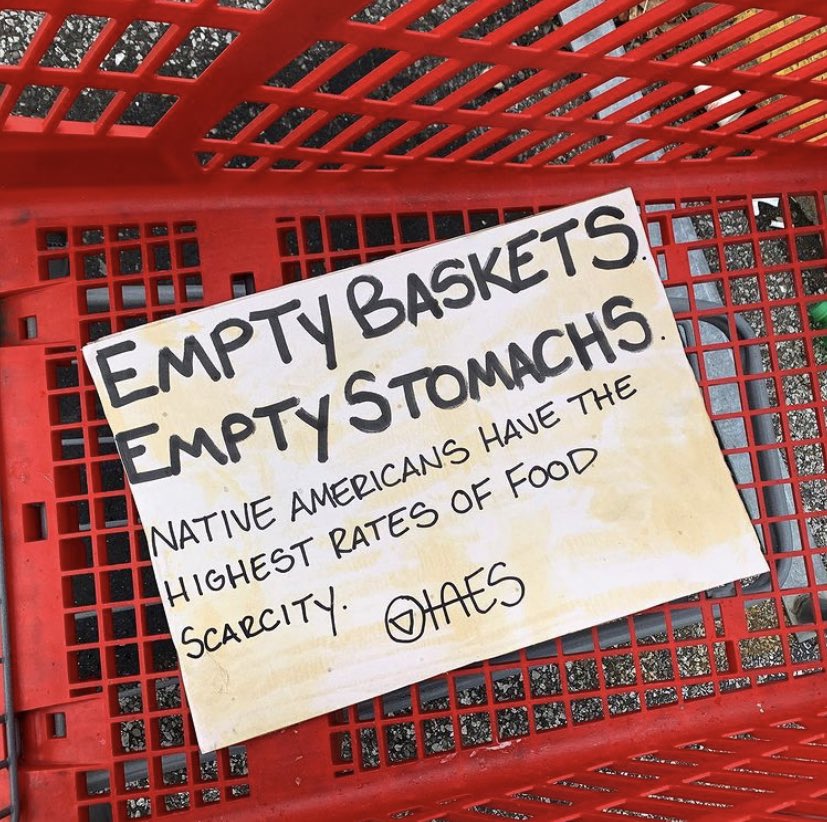 EMPTY BASKETS.
EMPTY STOMACHS.
NATIVE AMERICANS HAVE THE
HIGHEST RATES OF FOOD
SCARCITY.